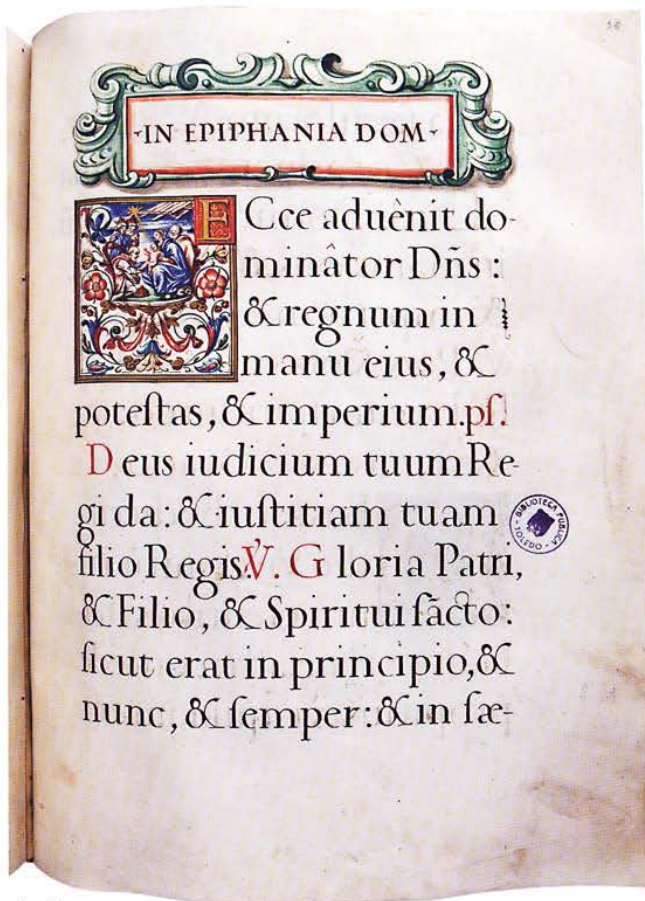 IN EPIPHANIA DOM
ECce aduênit do-
minâtor Dñs :
& regnum in
manu eius, &
poteſtas, & imperium. pſ.
Deus iudicium tuum Re-
gi da: & iuſtitiam tuam
filio Regis. V. Gloria Patri,
& Filio, & Spiritui ſãcto:
ſicut erat in principio, &
nunc, & ſemper: & in ſæ-
BIBLIOTECA PUBLICA
TOLEDO